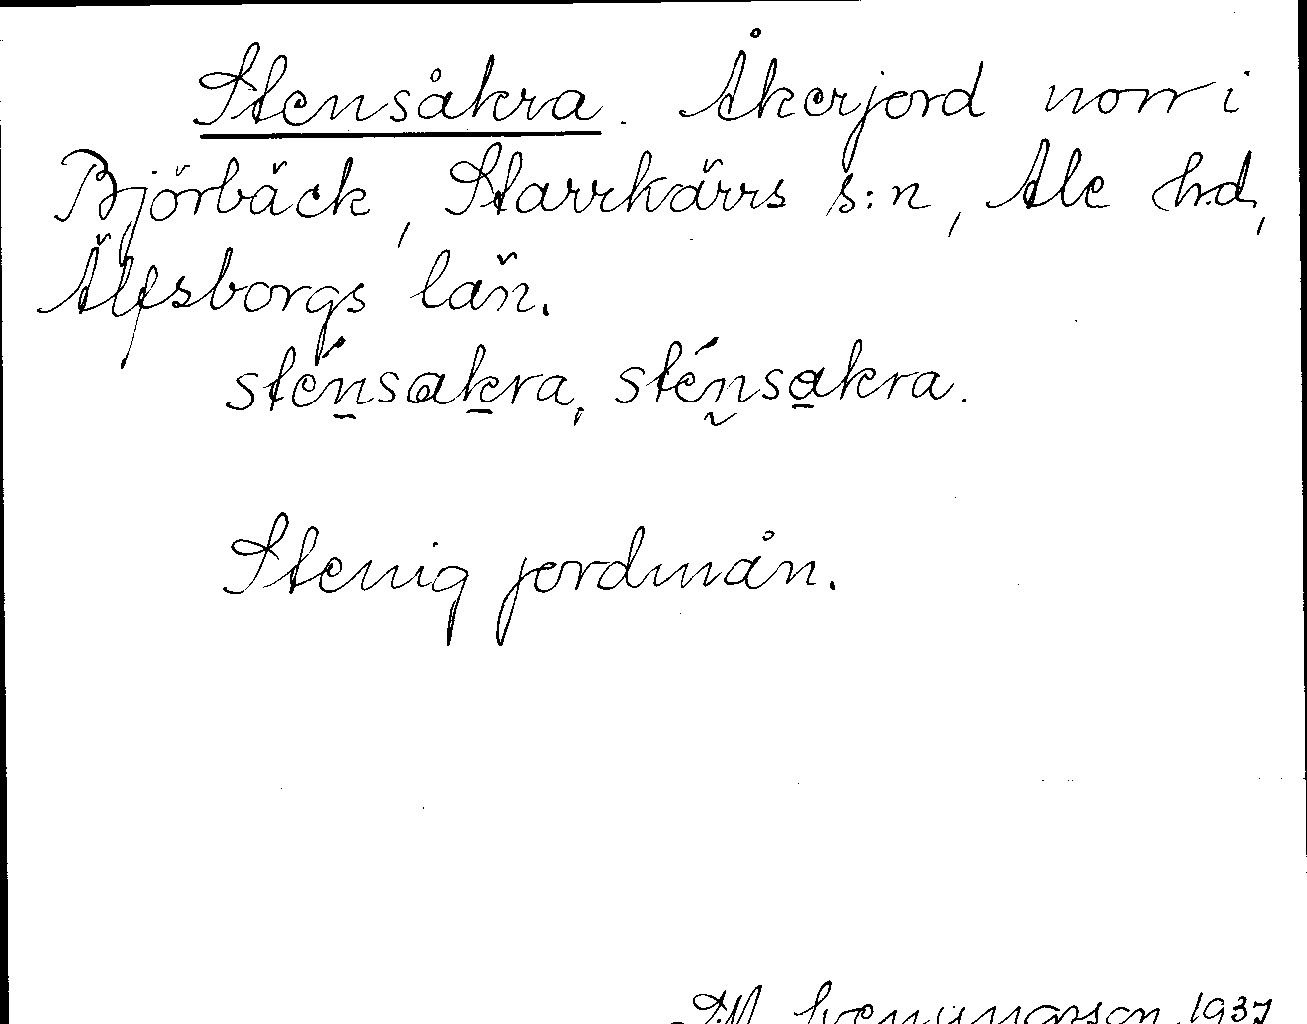 Stensåkra. Åkerjord norr i
Björbäck, Starrkärrs s:n, Ale hd,
Älfsborgs län.
sténsakra, sténsakra.
Stenig jordmån.
M 1937